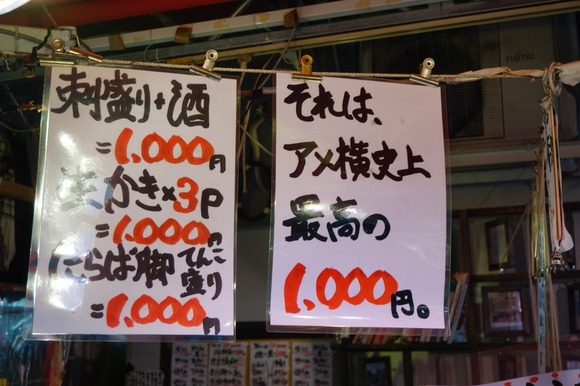 刺盛り+酒
=1.000円
生かき×3P
=1.000円
たらば脚てんこ盛り
=1.000円
それは、
アメ横史上
最高の
1.000円。
FUJITSU